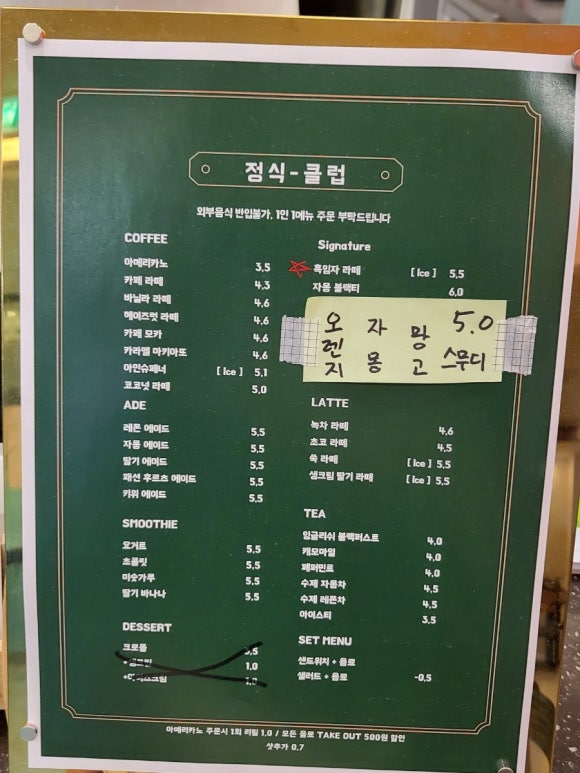 정식-클럽
외부음식 반입불가, 1인 1메뉴 주문 부탁드립니다
COFFEE
아메리카노 3,5
카페 라떼 4,3
바닐라 라떼 4,6
헤이즈럿 라떼 4,6
카페 모카 4,6
카라멜 마키아또 4,6
아인슈페너 [ Ice ] 5,1
코코넛 라떼 5,0
ADE
레몬 에이드 5,5
자몽 에이드 5,5
딸기 에이드 5,5
패션 후르츠 에이드 5,5
키위 에이드 5,5
SMOOTHIE
요거트 5,5
초콜릿 5,5
미숫가루 5,5
딸기 바나나 5,5
DESSERT
크로플 3,5
1,0
Signature
흑임자 라떼 [ Ice ] 5,5
자몽 블랙티 6,0
오렌지 자몽 망고 스무디 5.0
LATTE
녹차 라떼 4,6
초코 라떼 4,5
쑥 라떼 [ Ice ] 5,5
생크림 딸기 라떼 [ Ice ] 5,5
TEA
잉글리쉬 블랙퍼스트 4,0
캐모마일 4,0
페퍼민트 4,0
수제 자몽차 4,5
수제 레몬차 4,5
아이스티 3,5
SET MENU
샌드위치 + 음료
샐러드 + 음료 -0,5
아메리카노 주문시 1회 리필 1,0 / 모든 음료 TAKE OUT 500원 할인
샷추가 0,7